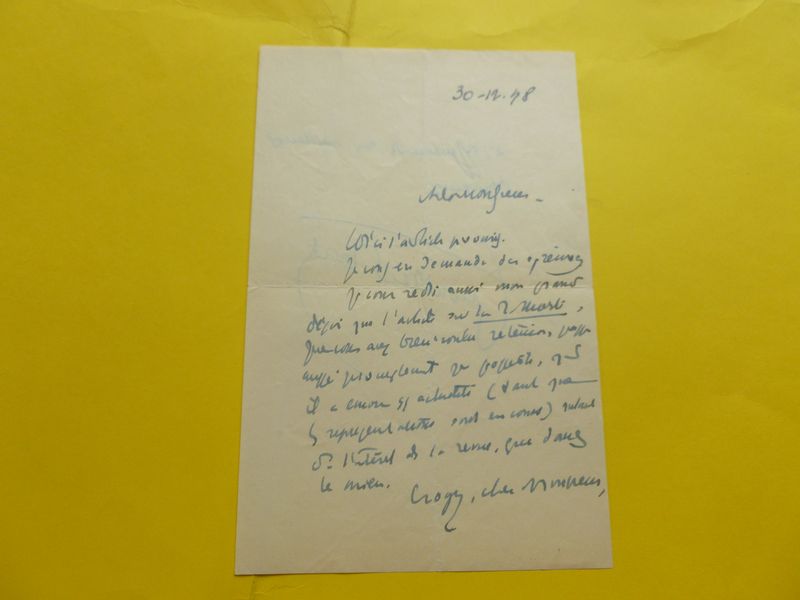 30-12-48
Cher Monsieur -
Voici l'article promis.
Je vous en demande des épreuves
Je vous redis aussi mon grand
désir que l'article sur
que vous avez bien voulu retenir, passe
aussi promptement que possible, quand
il a encore son actualité (tant que
les représentations sont en cours) autant
ds l'intérêt de la revue, que dans
le mien.
Croyez, cher Monsieur,